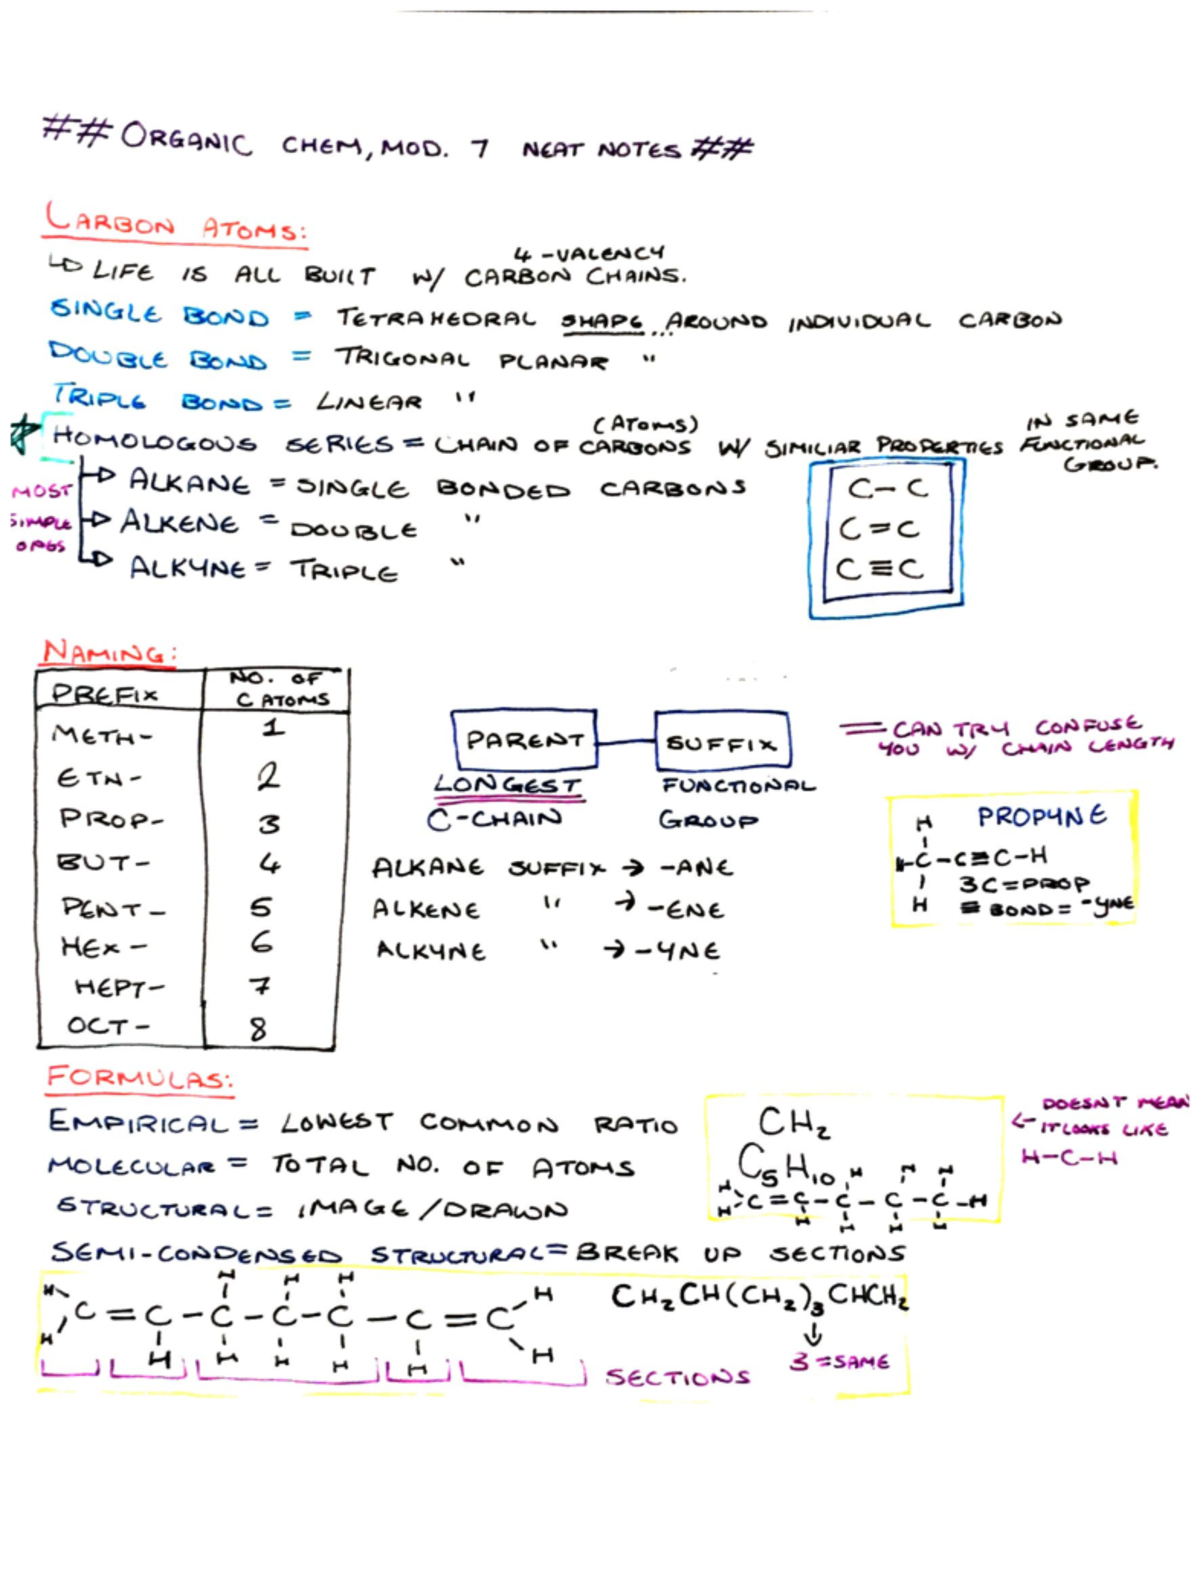 ## ORGANIC CHEM, MOD. 7 NEAT NOTES ##
CARBON ATOMS:
4-VALENCY
↳ LIFE IS ALL BUILT W/ CARBON CHAINS.
SINGLE BOND = TETRAHEDRAL SHAPE... AROUND INDIVIDUAL CARBON
DOUBLE BOND = TRIGONAL PLANAR "
TRIPLE BOND = LINEAR "
(ATOMS)
HOMOLOGOUS SERIES = CHAIN OF CARBONS W/ SIMILIAR PROPERTIES IN SAME FUNCTIONAL GROUP.
MOST SIMPLE ORGS
ALKANE = SINGLE BONDED CARBONS
ALKENE = DOUBLE "
ALKYNE = TRIPLE "
C-C
C=C
C≡C
NAMING:
PREFIX NO. OF C ATOMS
METH- 1
ETH- 2
PROP- 3
BUT- 4
PENT- 5
HEX- 6
HEPT- 7
OCT- 8
PARENT — SUFFIX
LONGEST C-CHAIN
FUNCTIONAL GROUP
= CAN TRY CONFUSE
YOU W/ CHAIN LENGTH
ALKANE SUFFIX → -ANE
ALKENE " → -ENE
ALKYNE " → -YNE
PROPYNE
H
H-C-C≡C-H
H
3C=PROP
≡ BOND = -YNE
FORMULAS:
EMPIRICAL = LOWEST COMMON RATIO
MOLECULAR = TOTAL NO. OF ATOMS
STRUCTURAL = IMAGE/DRAWN
CH₂
C₅H₁₀
H H H
H
H C=C-C-C-C-H
H H H H
← DOESNT MEAN
IT LOOKS LIKE
H-C-H
SEMI-CONDENSED STRUCTURAL = BREAK UP SECTIONS
H H H H H
C=C-C-C-C-C=C
H H H H H H H
CH₂CH(CH₂)₃CHCH₂
↓
3=SAME
SECTIONS